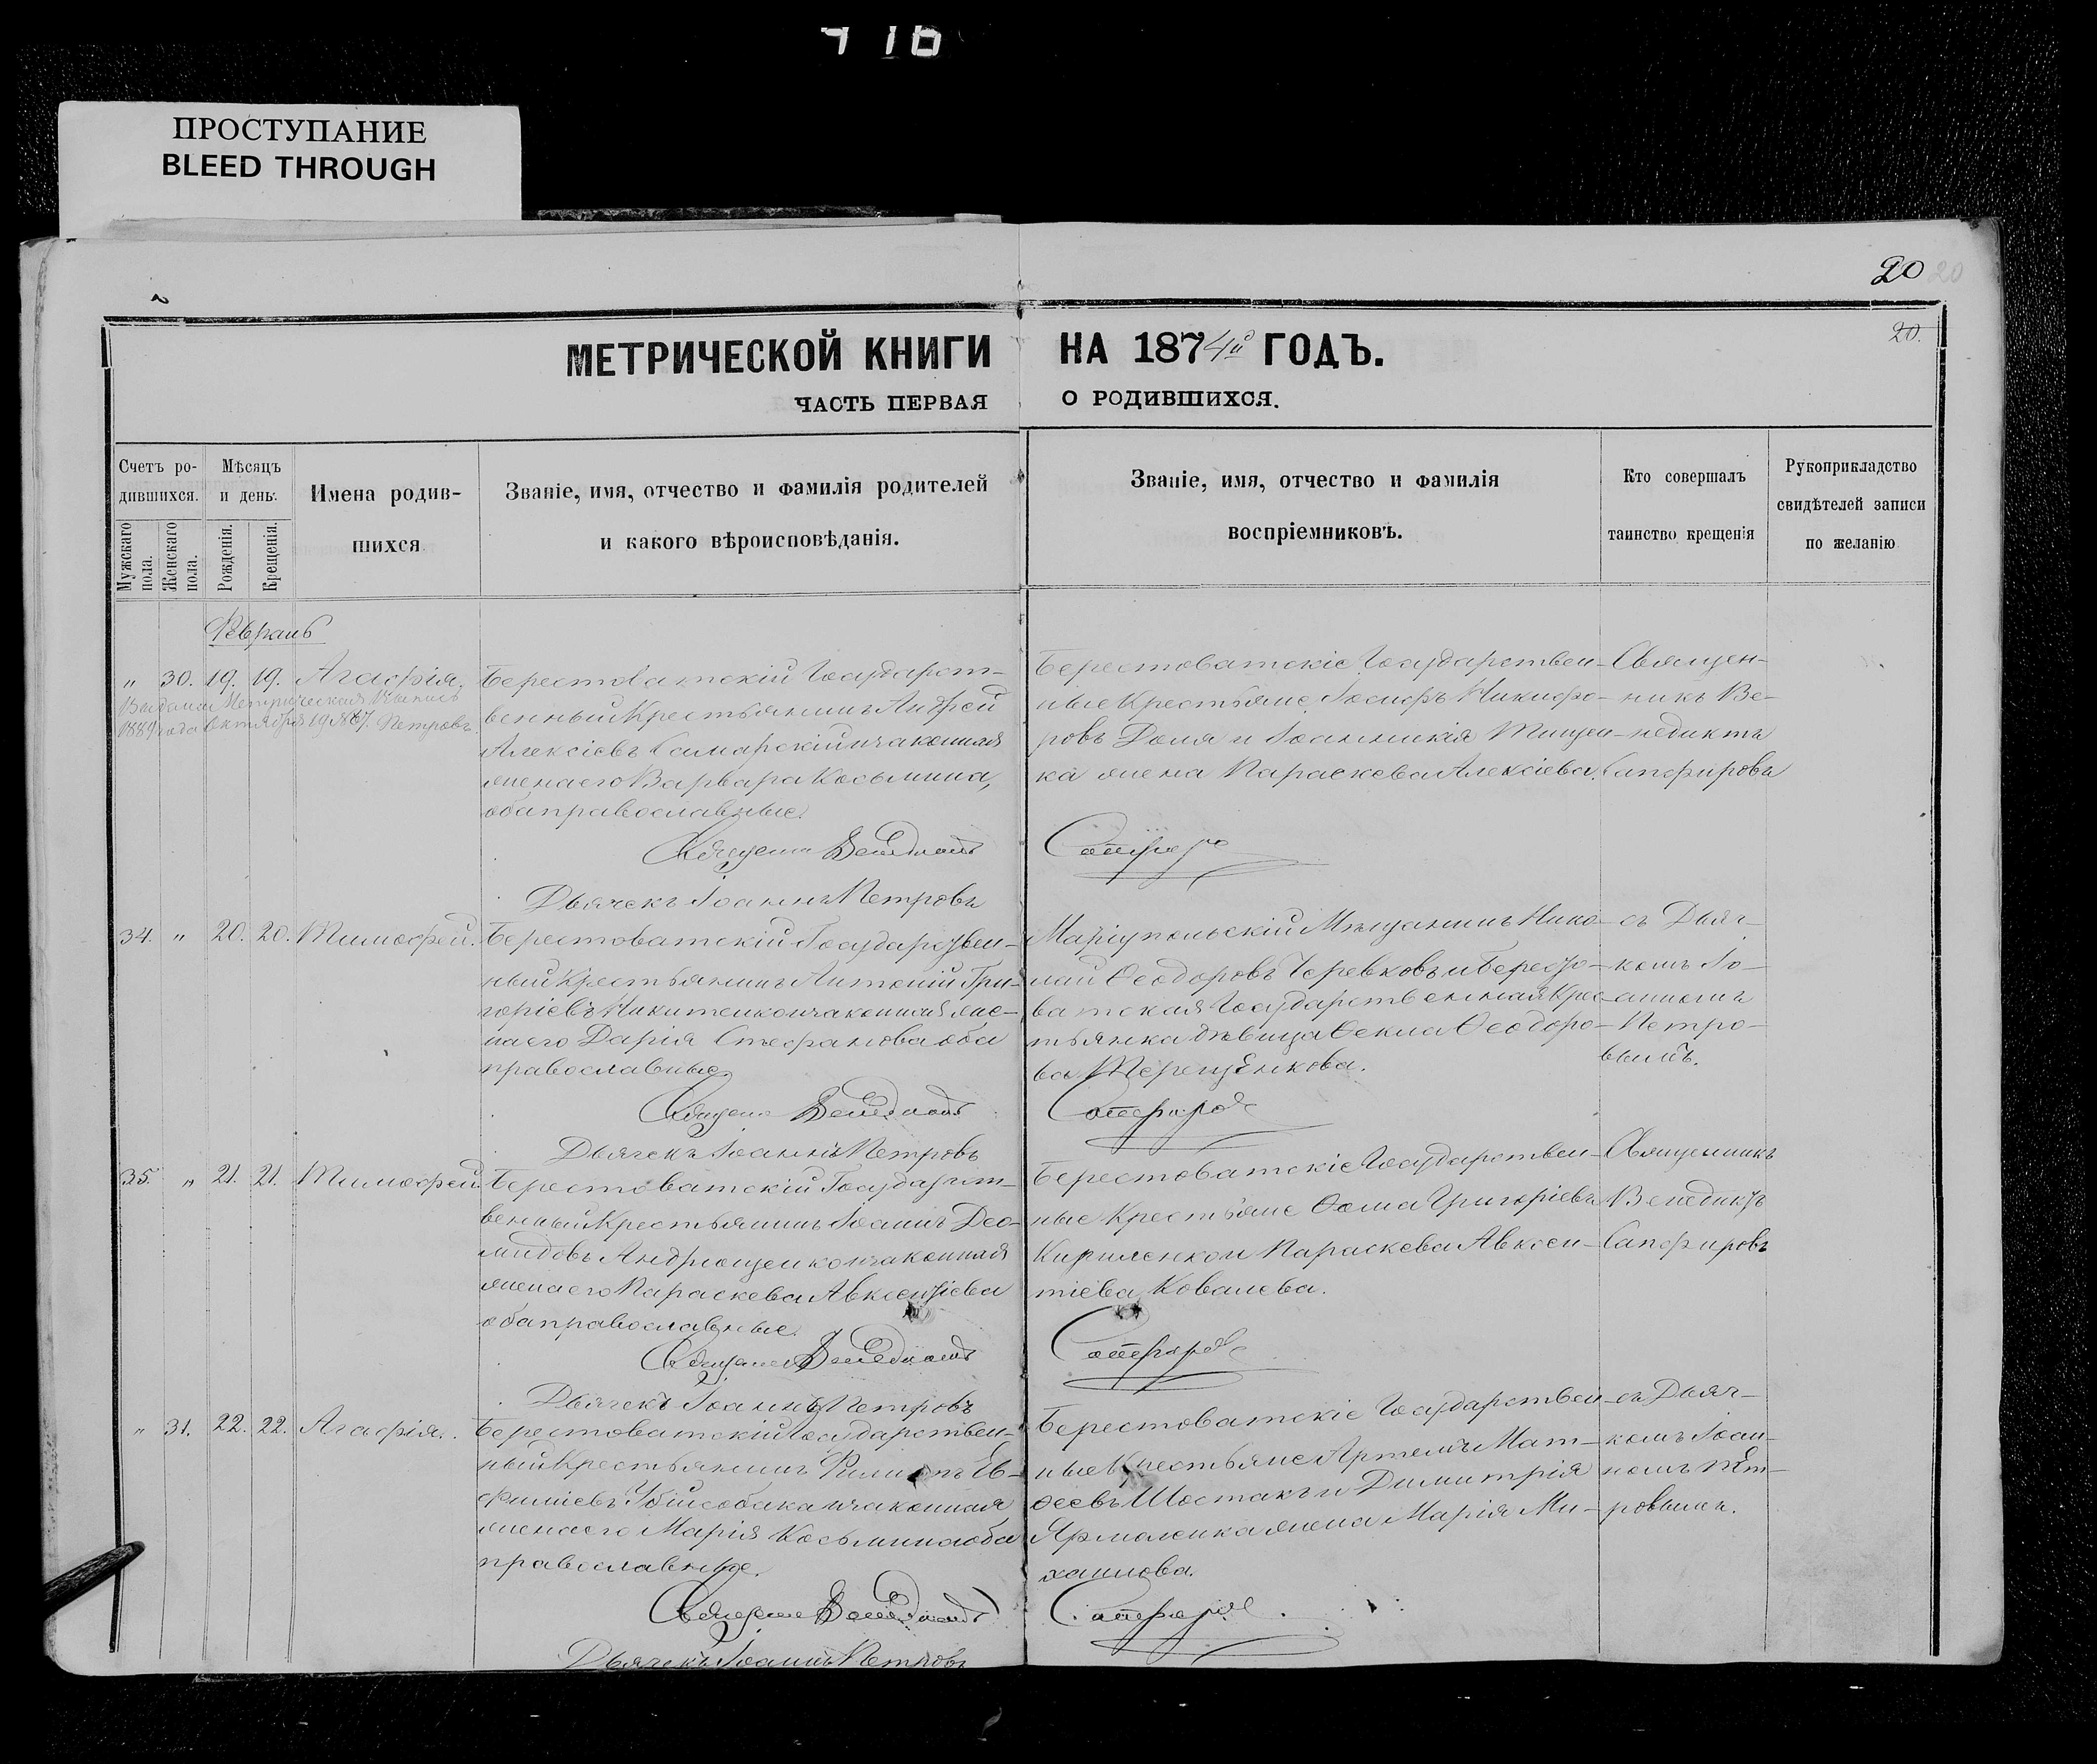 716
ПРОСТУПАНИЕ
BLEED THROUGH
20 20
20.
МЕТРИЧЕСКОЙ КНИГИ НА 1874й ГОДЪ.
ЧАСТЬ ПЕРВАЯ О РОДИВШИХСЯ.
Счетъ ро-
дившихся.
Мужскаго пола.
Женскаго пола.
Мѣсяцъ
и день.
Рожденія.
Крещенія.
Имена родив-
шихся
Званіе, имя, отчество и фамилія родителей
и какого вѣроисповѣданія.
Званіе, имя, отчество и фамилія
воспріемниковъ.
Кто совершалъ
таинство крещенія
Рукоприкладство
свидѣтелей записи
по желанію
Февраль
„ 30. 19. 19. Агафія.
Выдана Метрическая Выпись
1889 года Октября 19 №67. Петровъ
Берестоватскій Государст-
венный Крестьянинъ Андрей
Алексіевъ Самарскій и законная
жена его Варвара Косьмина,
оба православные.
Священникъ Венедиктъ
Дьячекъ Іоаннъ Петровъ
Берестоватскіе Государствен-
ные Крестьяне Іосифъ Никифо-
ровъ Доля и Іоанникія Тищен-
ка жена Параскева Алексіева.
Сапфировъ
Священ-
никъ Ве-
недиктъ
Сапфировъ
34. „ 20. 20. Тимофей.
Берестоватскій Государствен-
ный Крестьянинъ Антоній Гри-
горіевъ Никитенко и законная же-
на его Дарія Стефанова оба
православные.
Священникъ Венедиктъ
Дьячекъ Іоаннъ Петровъ
Маріупольскій Мѣщанинъ Нико-
лай Ѳеодоровъ Черевковъ и Бересто-
ватская Государственная Крес-
тьянка дѣвица Ѳекла Ѳеодоро-
ва Терещенкова.
Сапфировъ
съ Дьяч-
комъ Іо-
анномъ
Петро-
вымъ.
35. „ 21. 21. Тимофей.
Берестоватскій Государст-
венный Крестьянинъ Іоаннъ Део-
мидовъ Андрющенко и законная
жена его Параскева Авксентіева
оба православные.
Священникъ Венедиктъ
Дьячекъ Іоаннъ Петровъ
Берестоватскіе Государствен-
ные Крестьяне Ѳома Григоріевъ
Кириленко и Параскева Авксен-
тіева Ковалева.
Сапфировъ
Священникъ
Венедиктъ
Сапфировъ
„ 31. 22. 22. Агафія.
Берестоватскій Государствен-
ный Крестьянинъ Филиппъ Ев-
фиміевъ Убійсобака и законная
жена его Марія Косьмина оба
православные.
Священникъ Венедиктъ
Дьячекъ Іоаннъ Петровъ
Берестоватскіе Государствен-
ные Крестьяне Артемъ Мат-
ѳеевъ Шостакъ и Димитрія
Ярмоленка жена Марія Ми-
хаилова.
Сапфировъ
съ Дьяч-
комъ Іоан-
номъ Пет-
ровымъ.